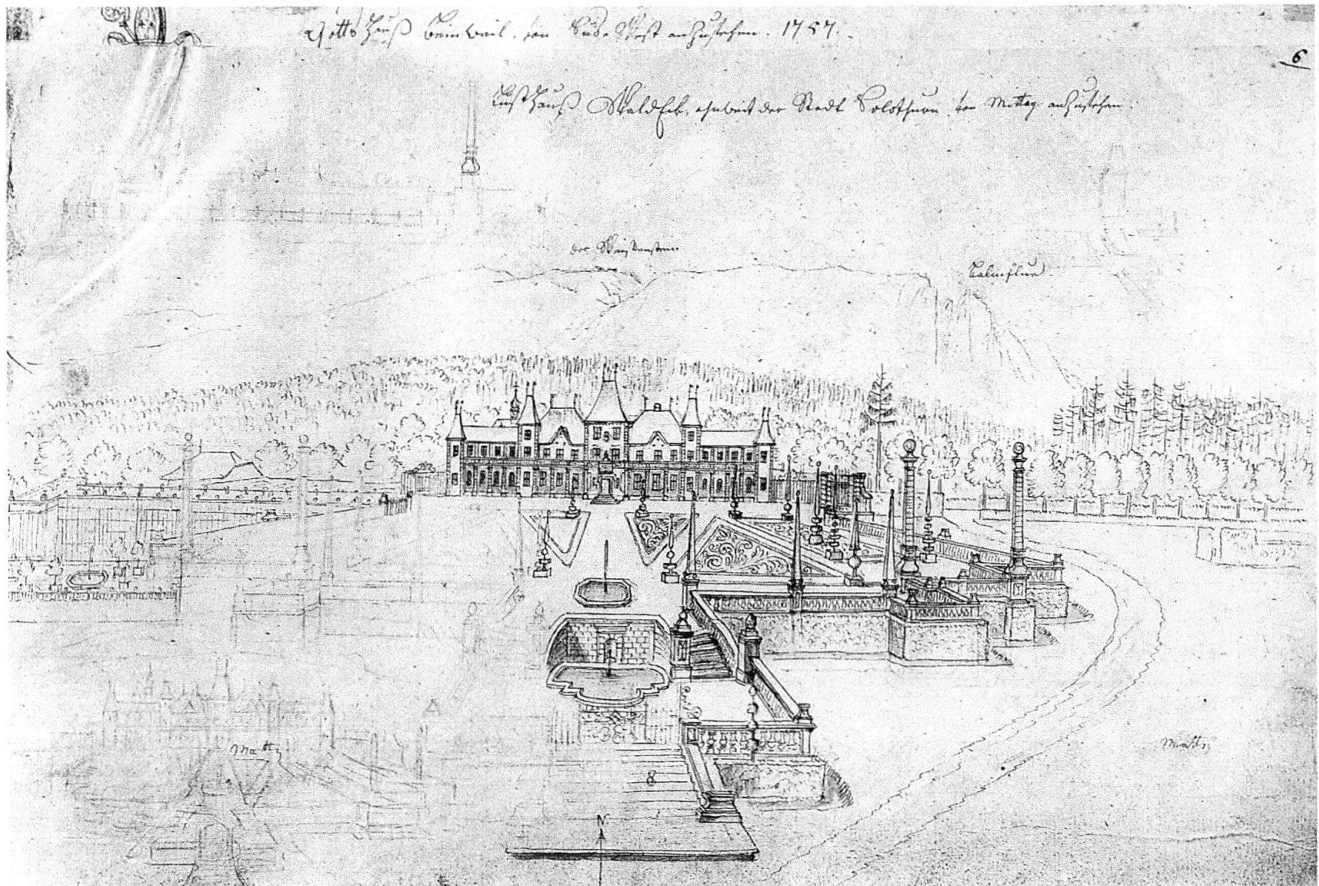 Gotts Hauß Beinweil. von Süd-West anzusehen. 1757.
6
Lust Hauß WaldEck, ohnweit der Stadt Solothurn von Mittag anzusehen.
der Weissenstein
Balmflue
Matte
Matte
8
N